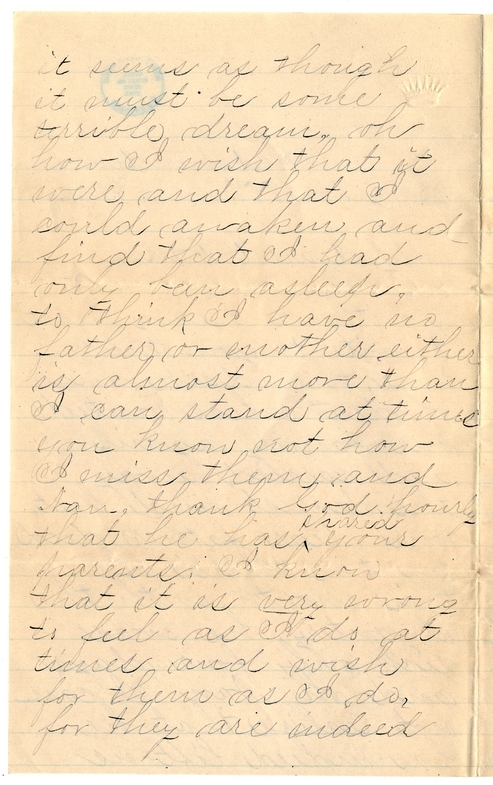 it seems as though
it must be some
terrible dream, oh
how I wish that it
were and that I
could awaken and
find that I had
only been asleep,
to think I have no
father or mother either
is almost more than
I can stand at times
you know not how
I miss them, and
Nan, thank God hourly
that he has spared your
parents. I know
that it is very wrong
to feel as I do at
times and wish
for them as I do,
for they are indeed